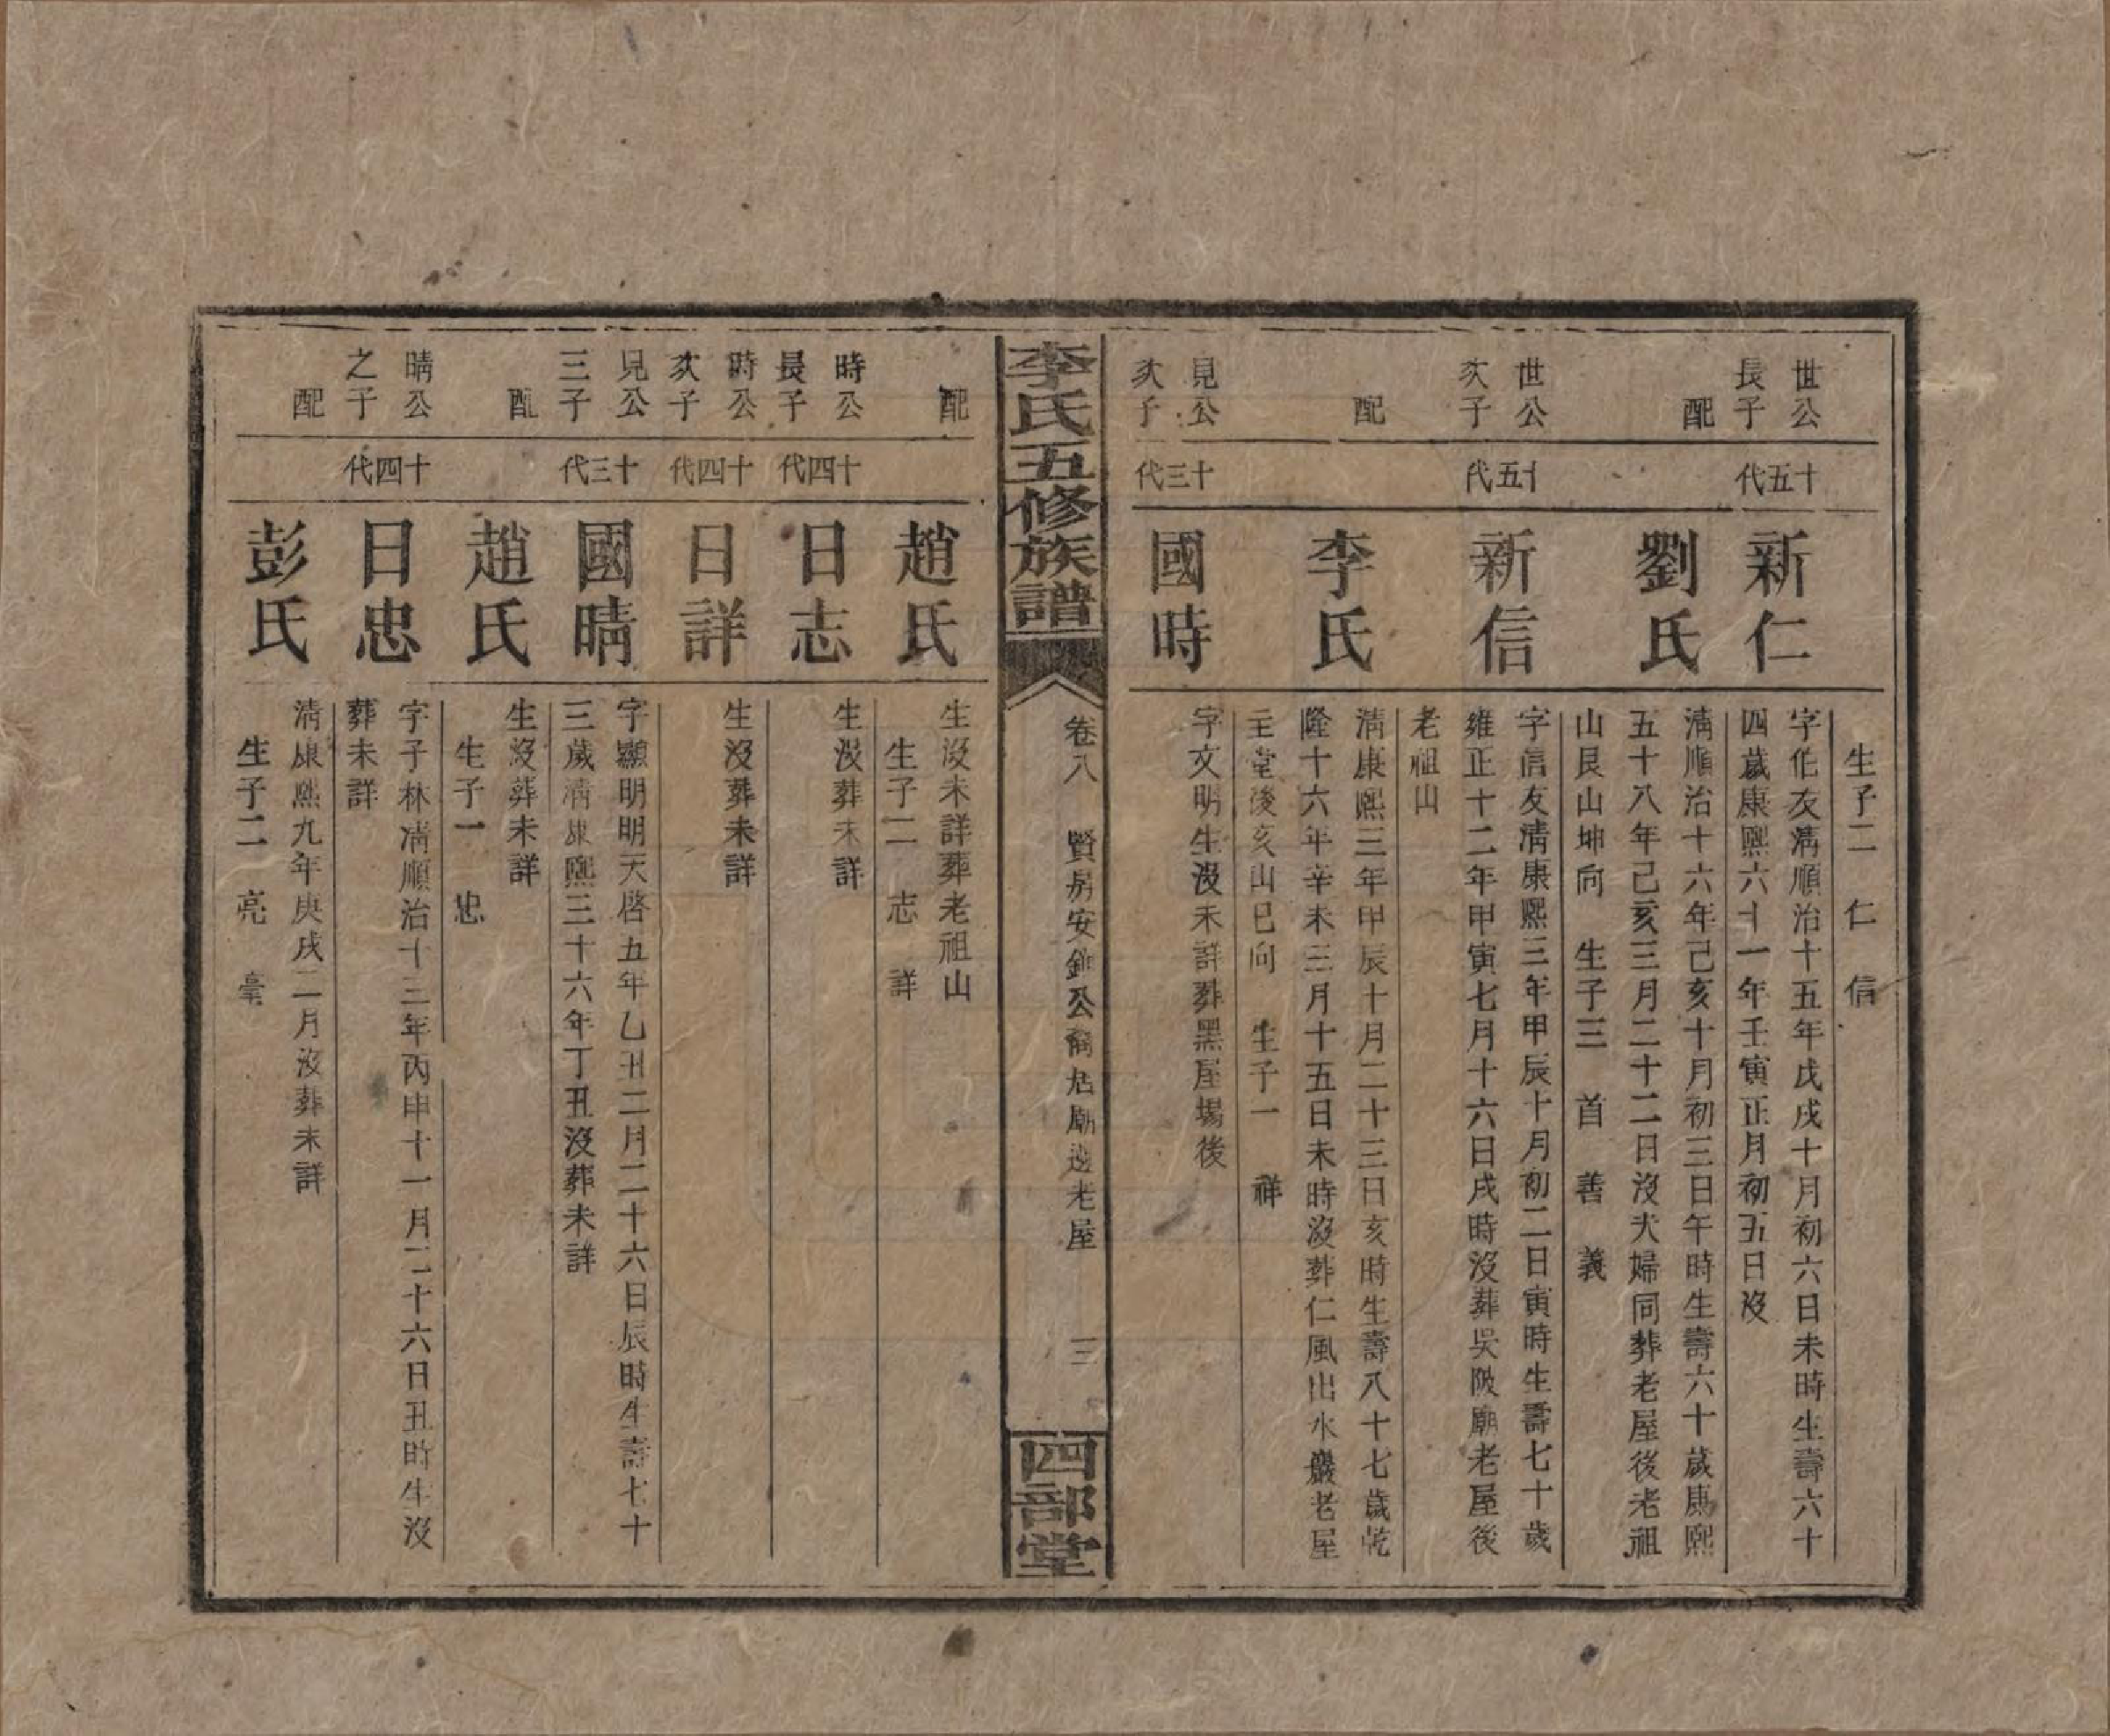 生子二 仁 信
世公長子
十五代
新仁
字伯友清順治十五年戊戌十月初六日未時生壽六十
四歲康熙六十一年壬寅正月初五日沒
配
劉氏
清順治十六年己亥十月初三日午時生壽六十歲康熙
五十八年己亥三月二十二日沒夫婦同葬老屋後老祖
山艮山坤向 生子三 首 善 義
世公次子
十五代
新信
字信友清康熙三年甲辰十月初二日寅時生壽七十歲
雍正十二年甲寅七月十六日戌時沒葬吳陂廟老屋後
老祖山
配
李氏
清康熙三年甲辰十月二十三日亥時生壽八十七歲乾
隆十六年辛未三月十五日未時沒葬仁風出水巖老屋
主堂後亥山巳向 生子一 祥
見公次子
十三代
國時
字文明生沒未詳葬黑屋場後
李氏五修族譜
卷八 賢房安鉀公裔居廟邊老屋 三
四部堂
配
趙氏
生沒未詳葬老祖山
生子二 志 詳
時公長子
十四代
日志
生沒葬未詳
時公次子
十四代
日詳
生沒葬未詳
見公三子
十三代
國晴
字顯明明天啓五年乙丑二月二十六日辰時生壽七十
三歲清康熙三十六年丁丑沒葬未詳
配
趙氏
生沒葬未詳
生子一 忠
晴公之子
十四代
日忠
字子林清順治十三年丙申十一月二十六日丑時生沒
葬未詳
配
彭氏
清康熙九年庚戌二月沒葬未詳
生子二 亮 毫